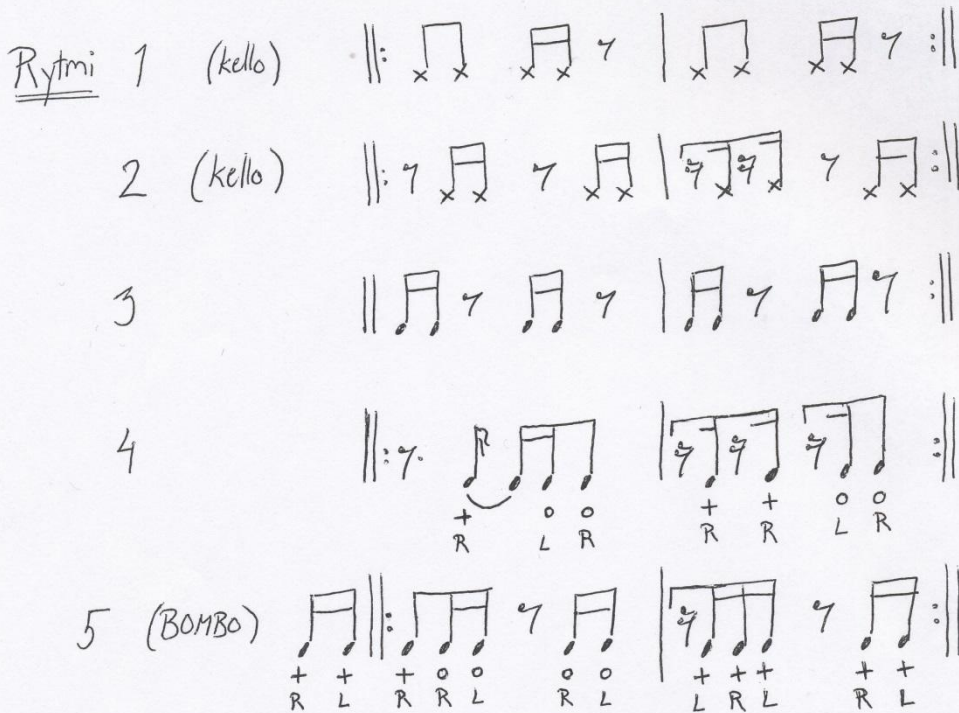 Rytmi 1 (kello)
2 (kello)
3
4
+ o o + + o o
R L R R R L R
5 (BOMBO)
+ + + o o o o + + + + +
R L R R L R L L R L R L